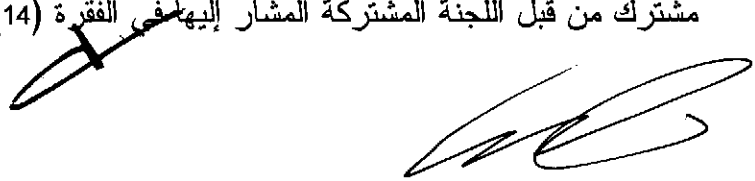 مشترك من قبل اللجنة المشتركة المشار إليها في الفقرة (14